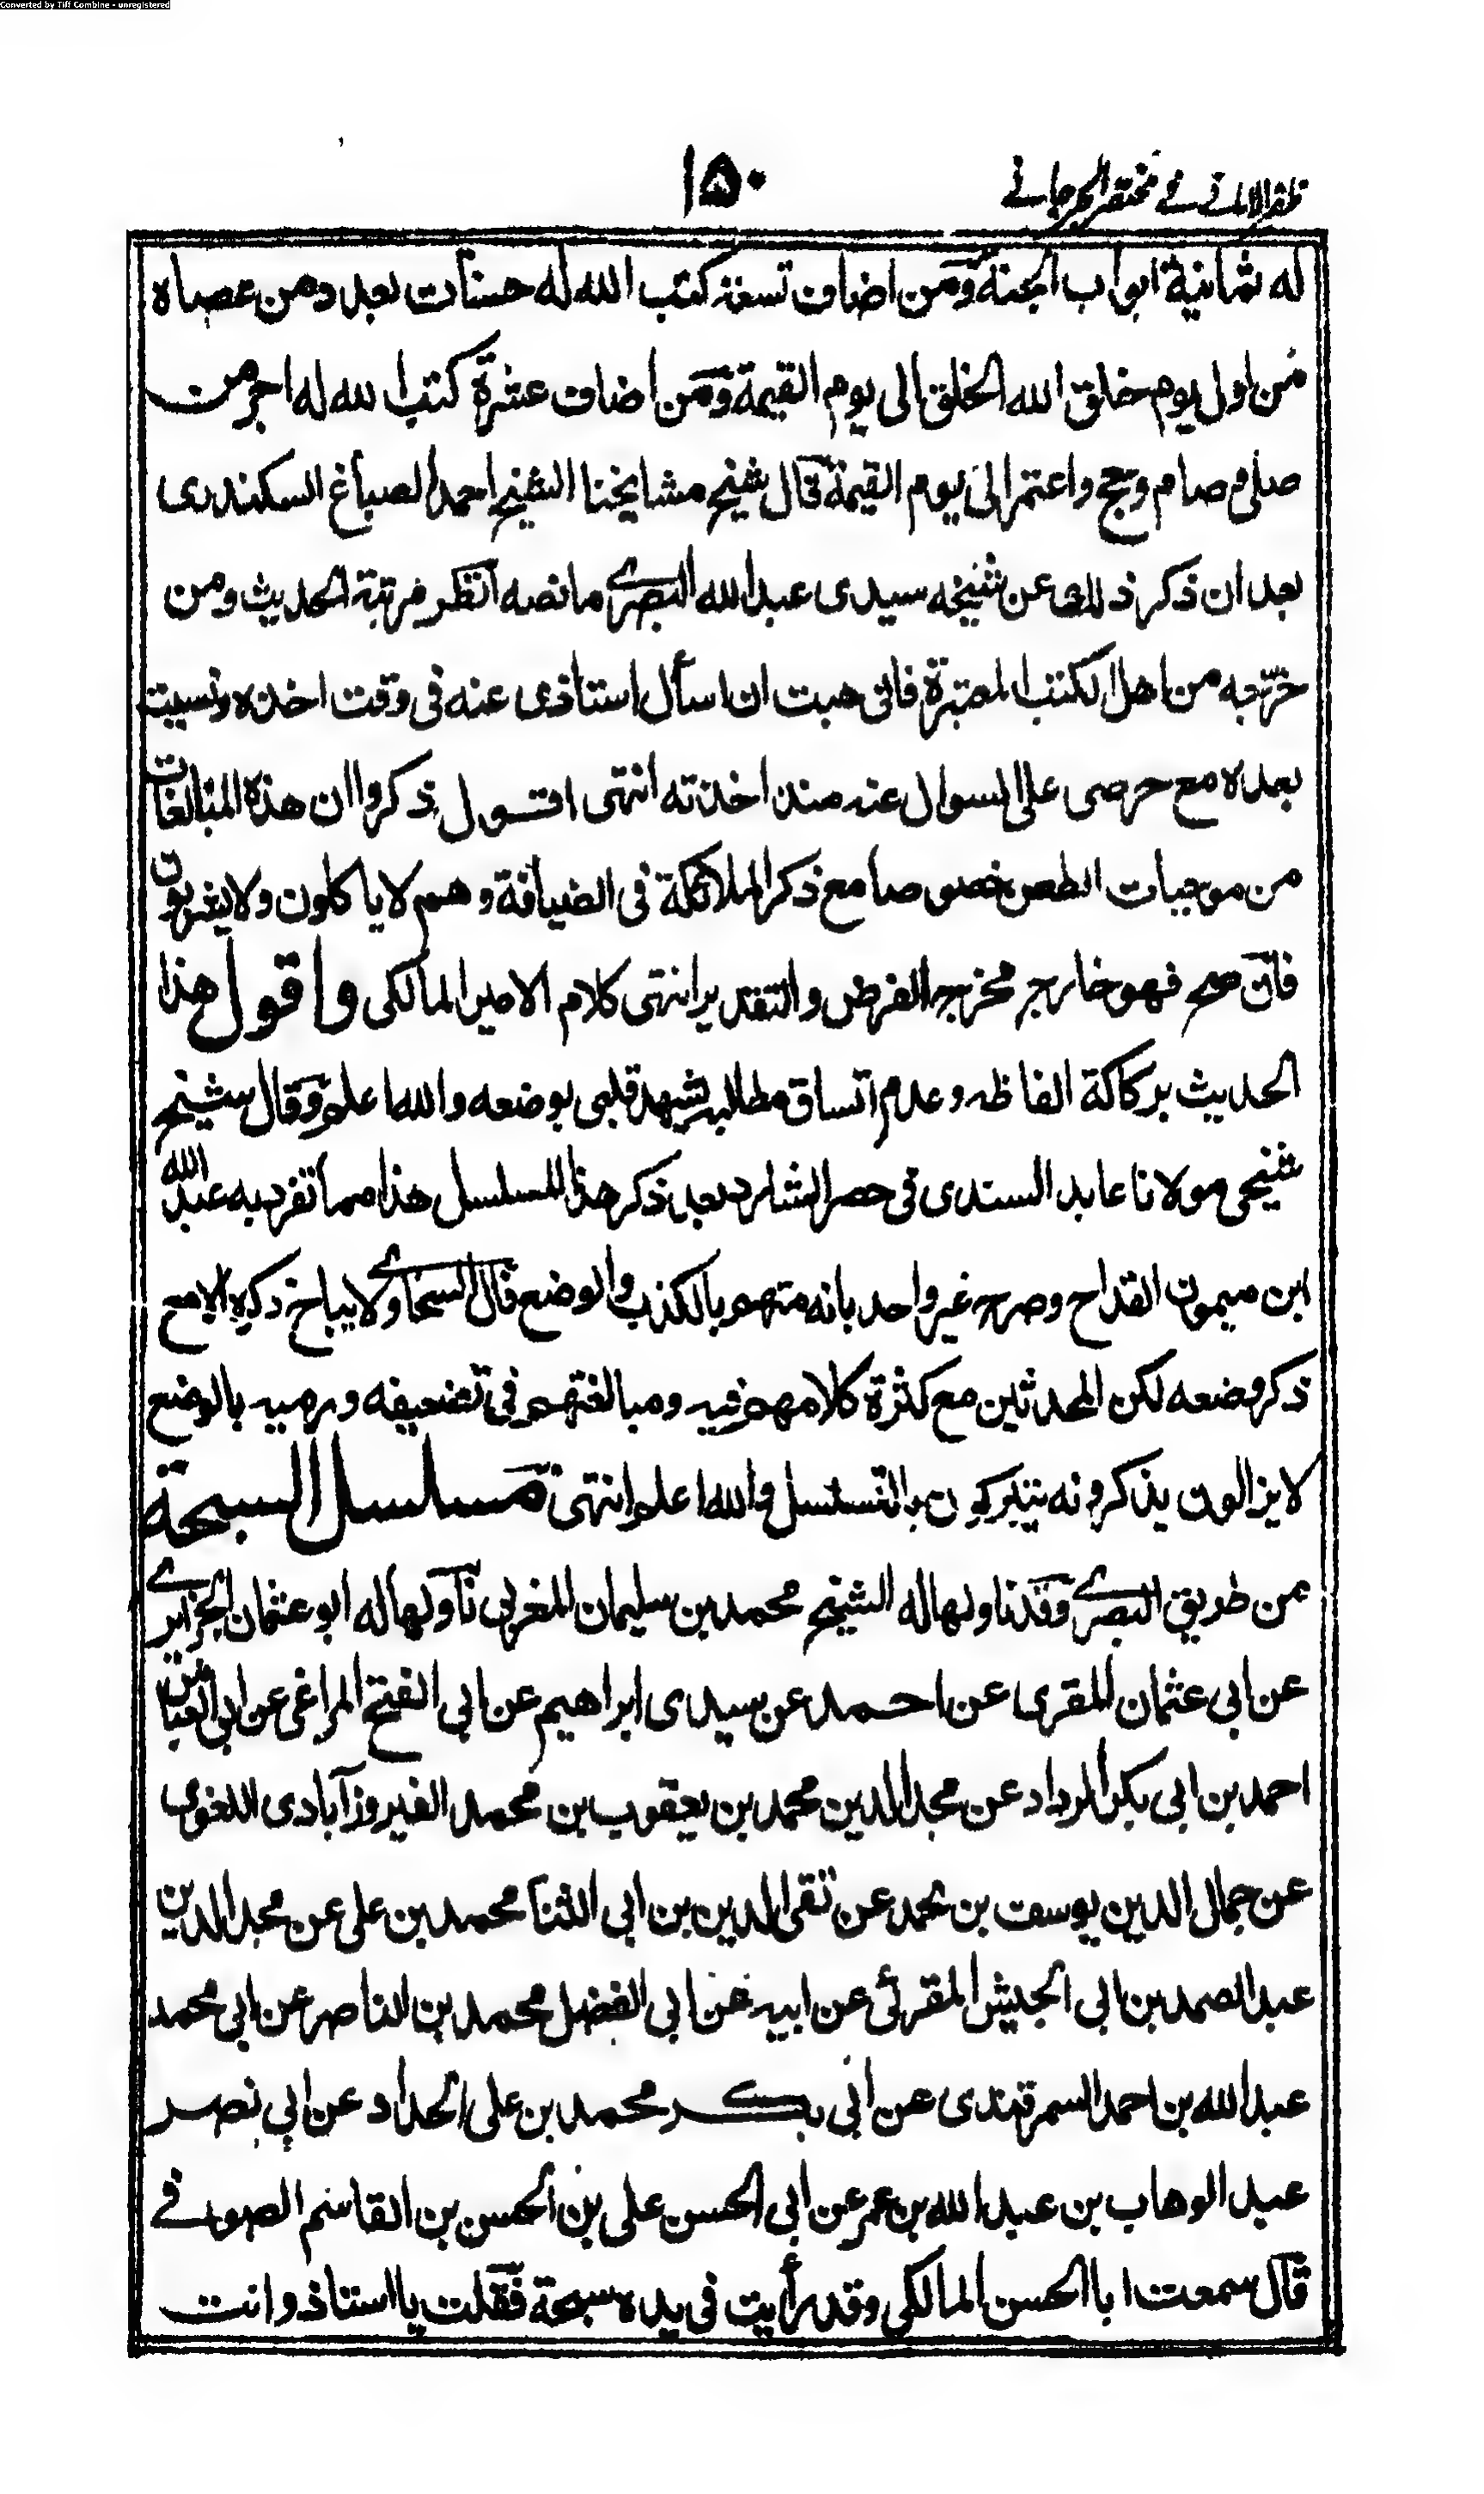 Converted by Tiff Combine - unregistered
ظفر الامانے فے مختصر الجرجانے
١٥٠
له ثمانية ابواب الجنة ومن اضاف تسعة كتب الله له حسنات بعدد من عصاه
من اول يوم خلق الله الخلق الى يوم القيمة ومن اضاف عشرة كتب الله له اجر من
صلى وصام وحج واعتمر الى يوم القيمة قال شيخ مشايخنا الشيخ احمد الصباغ السكندرى
بعد ان ذكر ذلك عن شيخه سيدى عبد الله البصرے ما نصه انظر مرتبة الحديث ومن
خرّجه من اهل الكتب المعتبرة فانى هبت ان اسأل استاذى عنه فى وقت اخذه ونسيت
بعده مع حرصى على السوال عنه منذ اخذته انتهى اقول ذكروا ان هذه المبالغات
من موجبات الطعن خصوصا مع ذكر الملائكة فى الضيافة وهم لا ياكلون ولا يشربون
فان صح فهو خارج مخرج الفرض والتقدير انتهى كلام الامير المالكى واقول هذا
الحديث بركاكة الفاظه وعدم اتساق مطالبه يشهد قلبى بوضعه والله اعلم وقال شيخ
شيخى مولانا عابد السندى فى حصر الشارد بعد ذكر هذا المسلسل هذا مما تفرد به عبد الله
ابن ميمون القداح وصرح غير واحد بانه متهم بالكذب والوضع قال السخاوے ولا يباح ذكره الا مع
ذكر وضعه لكن المحدثين مع كثرة كلامهم فيه ومبالغتهم فى تضعيفه ورميه بالوضع
لا يزالون يذكرونه يتبركون بالتسلسل والله اعلم انتهى مسلسل السبحة
من طريق البصرے وقد ناولها له الشيخ محمد بن سليمان المغربى ناولها له ابو عثمان الجزائرے
عن ابى عثمان المقرى عن احمد عن سيدى ابراهيم عن ابى الفتح المراغى عن ابى العباس
احمد بن ابى بكر الرداد عن مجد الدين محمد بن يعقوب بن محمد الفيروزآبادى اللغوى
عن جمال الدين يوسف بن محمد عن تقى الدين بن ابى الثنا محمد بن على عن مجد الدين
عبد الصمد بن ابى الجيش المقرئ عن ابيه عن ابى الفضل محمد بن الناصر عن ابى محمد
عبد الله بن احمد السمرقندى عن ابى بكر محمد بن على الحداد عن ابى نصر
عبد الوهاب بن عبد الله بن عمر عن ابى الحسن على بن الحسن بن القاسم الصوفے
قال سمعت ابا الحسن المالكى وقد رأيت فى يده سبحة فقلت يا استاذ وانت